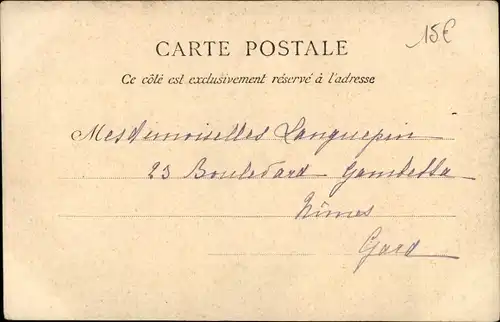 15€
CARTE POSTALE
Ce côté est exclusivement réservé à l'adresse
Mesdemoiselles Languepin
23 Boulevard Gambetta
Nîmes
Gard